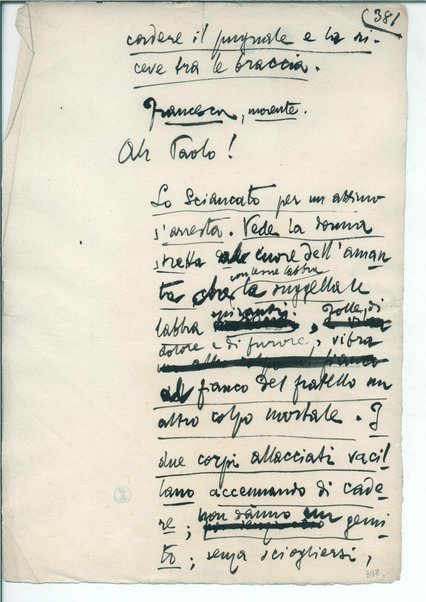 (381
cadere il pugnale e la ri-
ceve tra le braccia.
Francesca, morente.
Ah Paolo!
Lo Sciancato per un attimo
s'arresta. Vede la donna
stretta al cuore dell'aman-
con le sue labbra
te che le suggella le
labbra spiranti. Folle di
dolore e di furore, vibra
al fianco del fratello un
altro colpo mortale. I
due corpi allacciati vacil-
lano accennando di cade-
re; non dànno un gemi-
to; senza sciogliersi,
2
388.